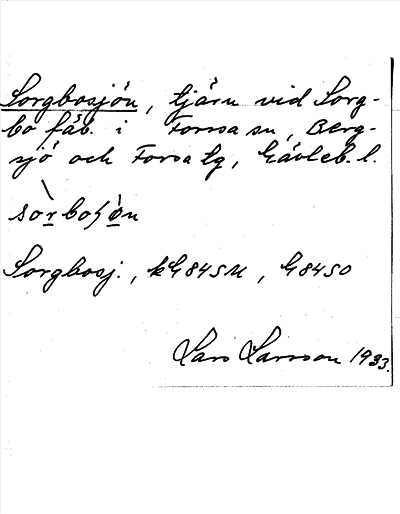 Sorgbosjön, tjärn vid Sorg-
bo fäb. i Forssa sn, Berg-
sjö och Forssa tg, Gävleb. l.
Sorgbosj., kG845M, G845O
Lars Larsson 1933.